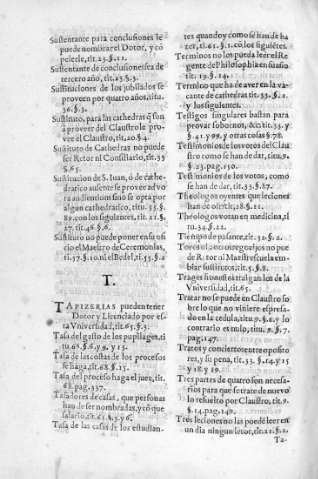 Sustentante para conclusiones le
puede nombrar el Dotor, y cõ
pelerle, tit.23.§.11.
Sustentante de conclusiones sea de
tercero año, tit.23.§.3.
Sustituciones de los jubilados se
proveen por quatro años, titu.
36.§.3.
Sustituto, para las cathedras q̃ son
a proveer del Claustro le pro-
vee el Claustro, tit.20.§.4.
Sustituto de Cathedras no puede
ser Retor ni Consiliario, tit.33
§.65.
Sustitucion de S. Iuan, ó de cathe
dratico ausente se provee ad vo
ta audientium si no se opta por
algun cathedratico, titu.33.§.
89. con los siguientes, tit.21.§.
17. tit.46.§.6.
Sustituto no puede poner en su ofi
cio el Maestro de Ceremonias,
tit.57.§.10. ni el Bedel, tit.55.§.2
T.
TAPIZERIAS pueden tener
Dotor y Licenciado por es-
ta Vniversidad, tit.65.§.3.
Tasa del gasto de los pupilages, ti
tu.66.§.6.y 9. y 15.
Tasa de las costas de los procesos
se haga, tit.68.§.15.
Tasa del proceso haga el juez, tit.
68. pag.337.
Tasadores de casas, que personas
han de ser nombradas, y cõ que
salario, tit.61.§.5.96.
Tasa de las casas de los estudian-
tes quando y como se ha de ha-
zer, ti.61.§.1. cõ los siguiẽtes.
Terminos no los pueda leer el Re
gente de Philosophia en su año
tit.19.§.14.
Termino que ha de aver en la va-
cante de cathedras tit.33.§.2.
y los siguientes.
Testigos singulares bastan para
provar sobornos, &c. tit.33. y
§.41 y 99. y otras cosas §.78.
Testimonio de los votos del Clau
stro como se han de dar, titu.9.
§.23. pag.150.
Testimonio de los votos, como
se han de dar, tit.33.§.87.
Theologos oyentes que leciones
han de oír, tit.18.§.11.
Theologos votan en medicina, ti
tu.34.§.22.
Tiempo de pasante, tit.32.§.2.
Toros el correr o regozijos no pue
de R. tor ni Maestrescuela em-
biar sustitutos, tit.5.§.38.
Trages honestos traigan los de la
Vniversidad, tit.65.
Tratar no se puede en Claustro so
bre lo que no viniere expresa-
do en la cedula, titu.9.§.2. y lo
contrario es nulo, titu.9.§.7.
pag.147.
Tratos y conciertos entre oposito
res, y su pena, tit.33.§.14. y 15
y 18. y 19.
Tres partes de quatro son neces-
sarios para que se trate de nuevo
lo resuelto por Claustro, tit.9.
§.14. pag.149.
Tres leciones no las puede leer en
un dia ningun letor, tit.21.§.2.
Ta-